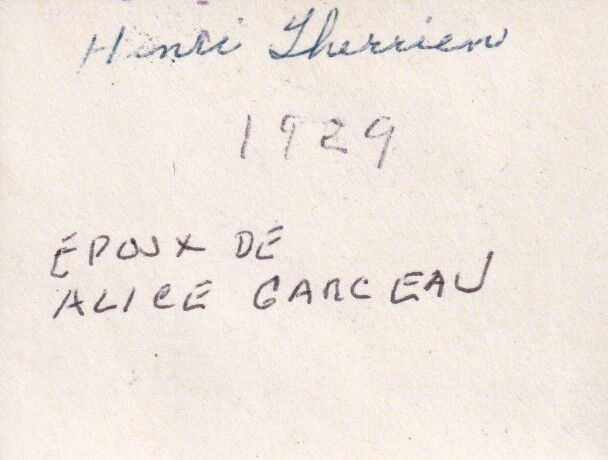 Henri Therrien
1929
EPOUX DE
ALICE GARCEAU